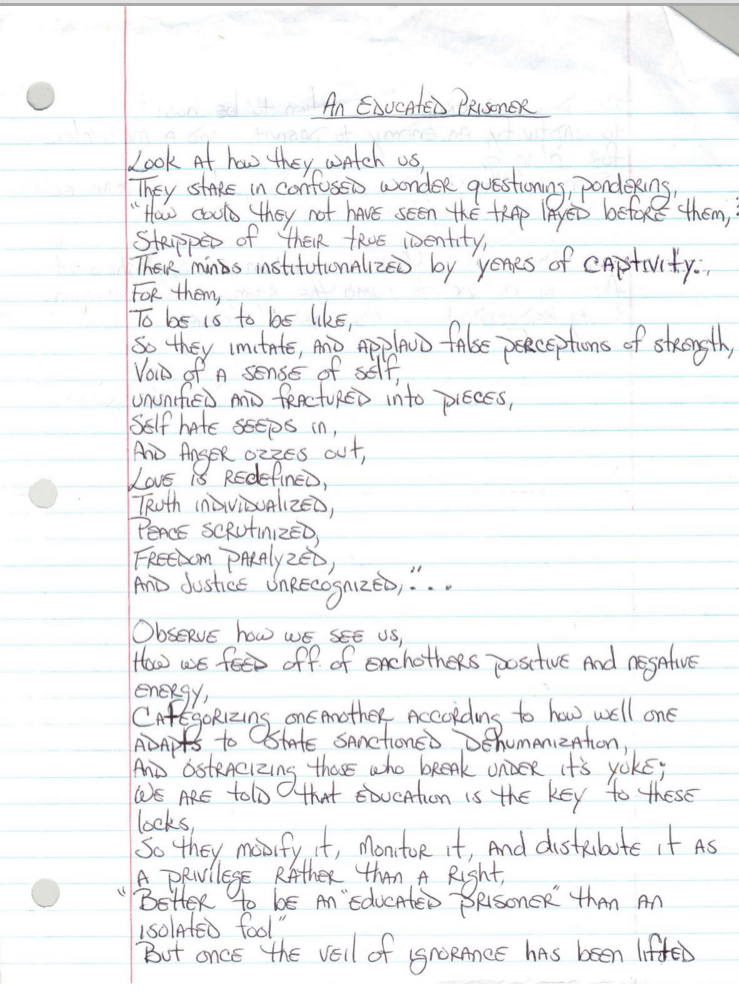 An Educated Prisoner
Look at how they watch us,
They stare in confused wonder questioning, pondering,
"How could they not have seen the trap layed before them,
Stripped of their true identity,
Their minds institutionalized by years of captivity.,
For them,
To be is to be like,
So they imitate, and applaud false perceptions of strength,
Void of a sense of self,
ununified and fractured into pieces,
Self hate seeps in,
And Anger ozzes out,
Love is Redefined,
Truth individualized,
Peace scrutinized,
Freedom paralyzed,
And Justice unrecognized,"...
Observe how we see us,
How we feed off of eachothers positive and negative
energy,
Categorizing oneanother according to how well one
adapts to State sanctioned Dehumanization,
And ostracizing those who break under it's yoke;
We are told that education is the key to these
locks,
So they modify it, monitor it, and distribute it as
a privilege rather than a Right,
"Better to be an "educated prisoner" than an
isolated fool"
But once the veil of ignorance has been lifted